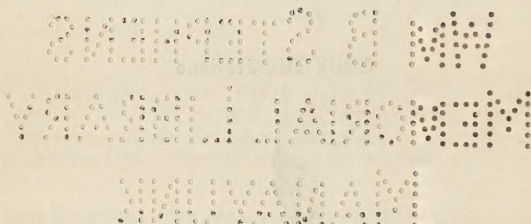 WM B STEPHENS
MEMORIAL LIBRARY
MANAYUNK